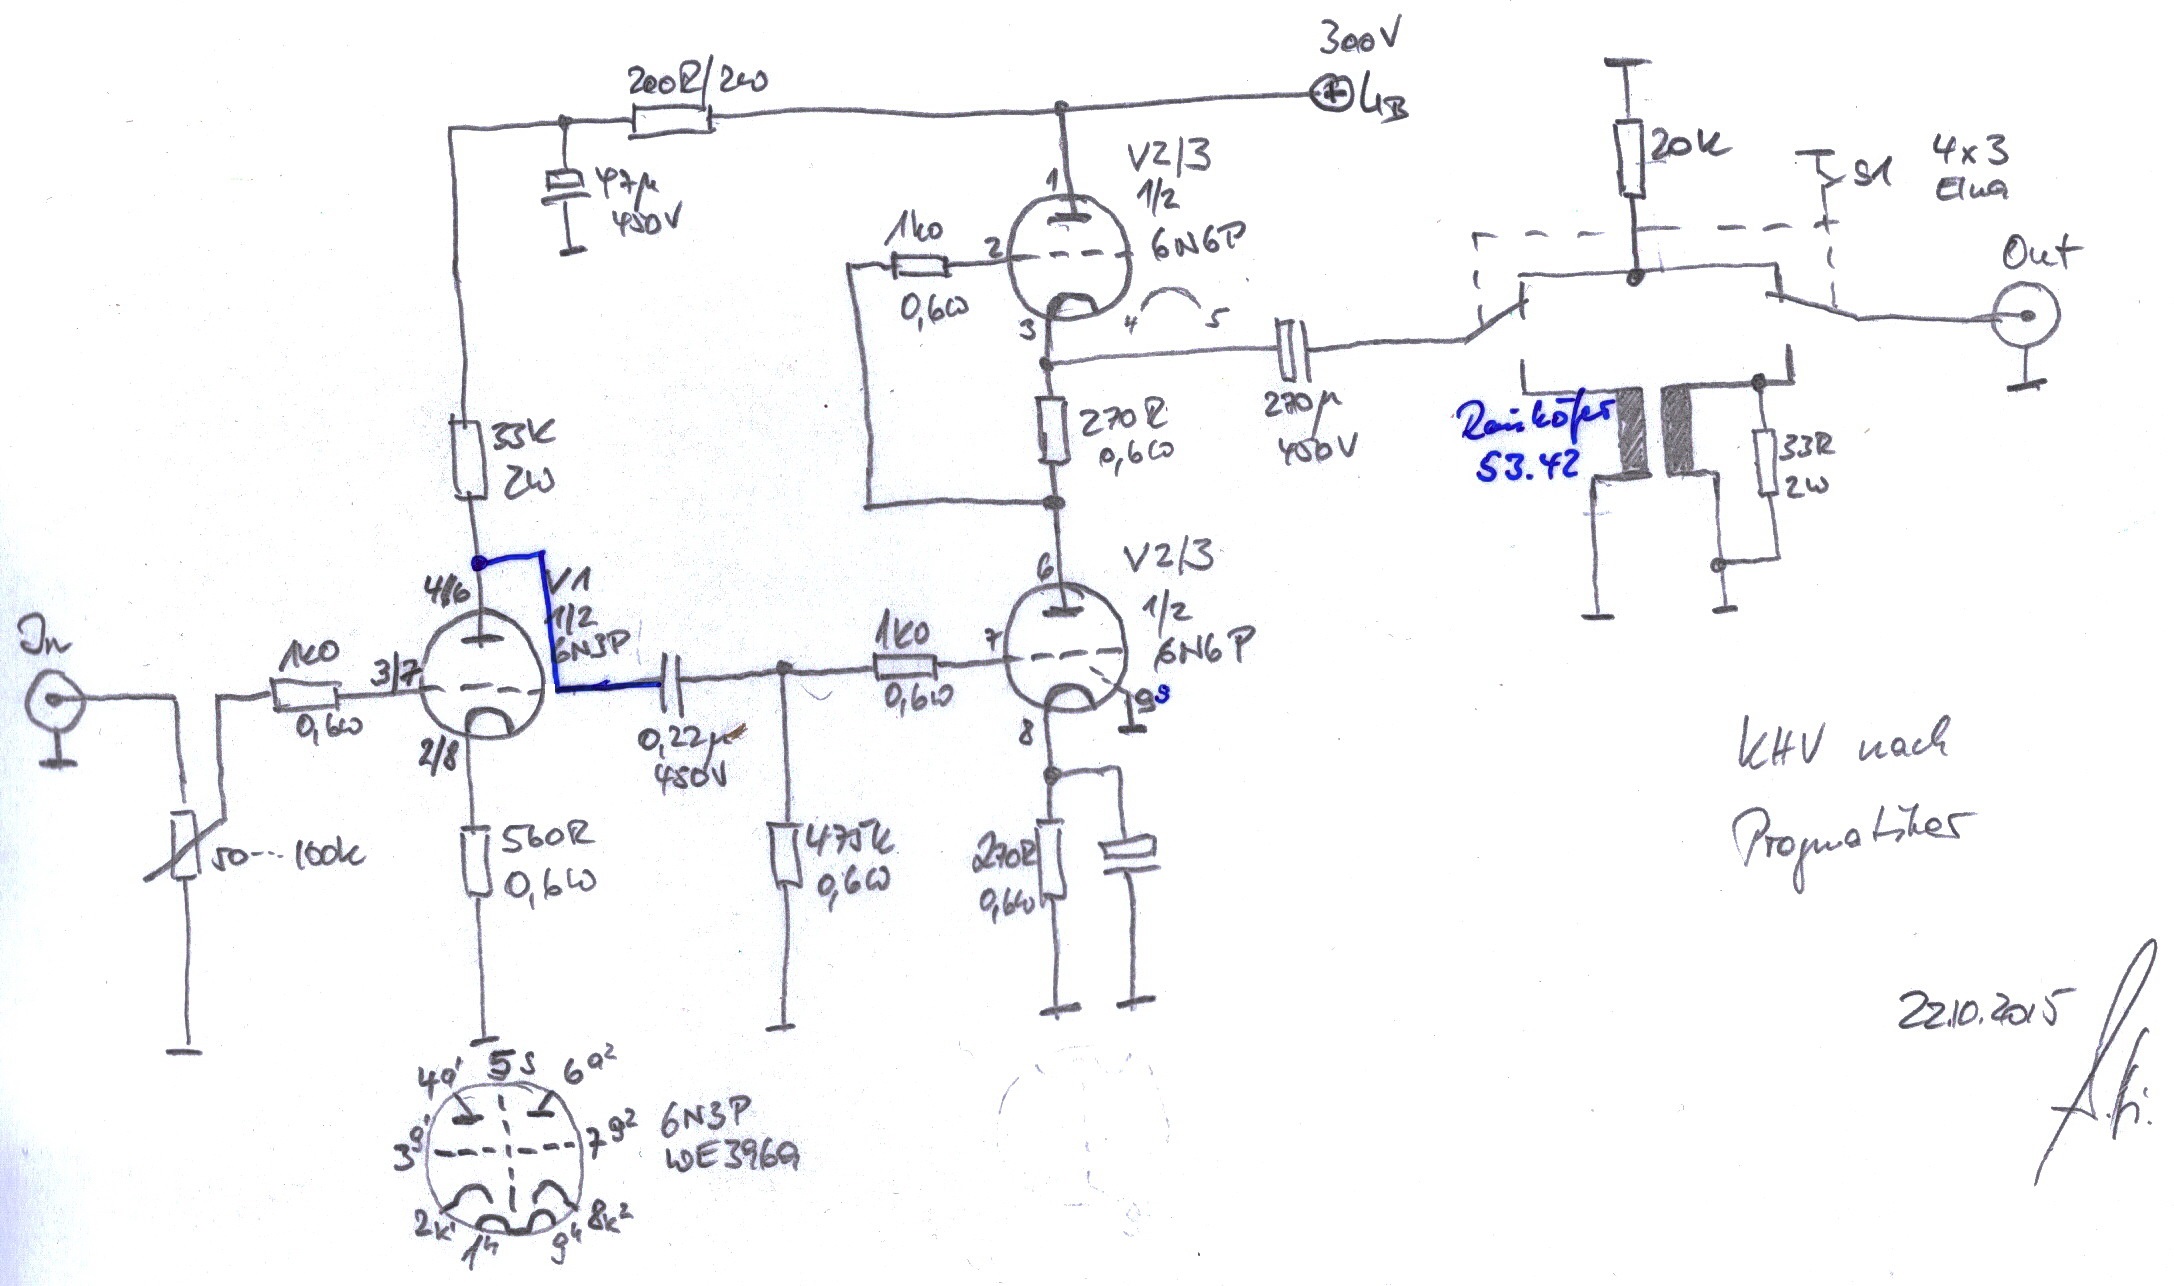 300V
UB
200R/2W
47µ
450V
V2/3
1/2
6N6P
1
2
3
4 5
1k0
0,6W
20K
S1
4x3
Out
270R
0,6W
270µ
450V
Raiköfer
53.42
33R
2W
33K
2W
V1
1/2
6N3P
4/6
3/7
2/8
In
1k0
0,6W
50---100k
560R
0,6W
0,22µ
450V
475k
0,6W
1k0
0,6W
V2/3
1/2
6N6P
6
7
8
9s
270R
0,6W
KHV nach
Pragmatiker
22.10.2015
4a' 5s 6a2
3g' 7g2
2k' 1h 9h 8k2
6N3P
WE396a